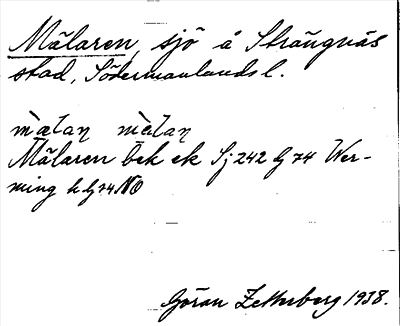 Mälaren, sjö å Strängnäs
stad, Södermanlands l.
mæ̀laṇ mæ̀laṇ
Mälaren bek ek Sj 242 G 74 Wer-
ming h G 74 NO
Göran Zetterberg 1938.